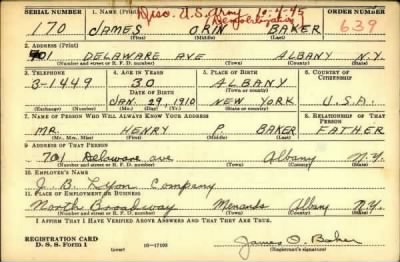 SERIAL NUMBER 1. NAME (Print) Disc. U.S. Army 10-4-45 ORDER NUMBER
(Demobilization)
170 JAMES ORIN BAKER 639
(First) (Middle) (Last)
2. ADDRESS (Print)
701 DELAWARE AVE ALBANY N.Y.
(Number and street or R. F. D. number) (Town) (County) (State)
3. TELEPHONE 4. AGE IN YEARS 5. PLACE OF BIRTH 6. COUNTRY OF CITIZENSHIP
3-1449 30 ALBANY
DATE OF BIRTH (Town or county)
JAN. 29, 1910 NEW YORK U.S.A.
(Exchange) (Number) (Mo.) (Day) (Yr.) (State or country)
7. NAME OF PERSON WHO WILL ALWAYS KNOW YOUR ADDRESS 8. RELATIONSHIP OF THAT PERSON
MR. HENRY P. BAKER FATHER
(Mr., Mrs., Miss) (First) (Middle) (Last)
9. ADDRESS OF THAT PERSON
701 Delaware ave Albany N.Y.
(Number and street or R. F. D. number) (Town) (County) (State)
10. EMPLOYER'S NAME
J. B. Lyon Company
11. PLACE OF EMPLOYMENT OR BUSINESS
North Broadway Menands Albany N.Y.
(Number and street or R. F. D. number) (Town) (County) (State)
I AFFIRM THAT I HAVE VERIFIED ABOVE ANSWERS AND THAT THEY ARE TRUE.
REGISTRATION CARD
D. S. S. Form 1 (over) 16-17105 James O. Baker
(Registrant's signature)